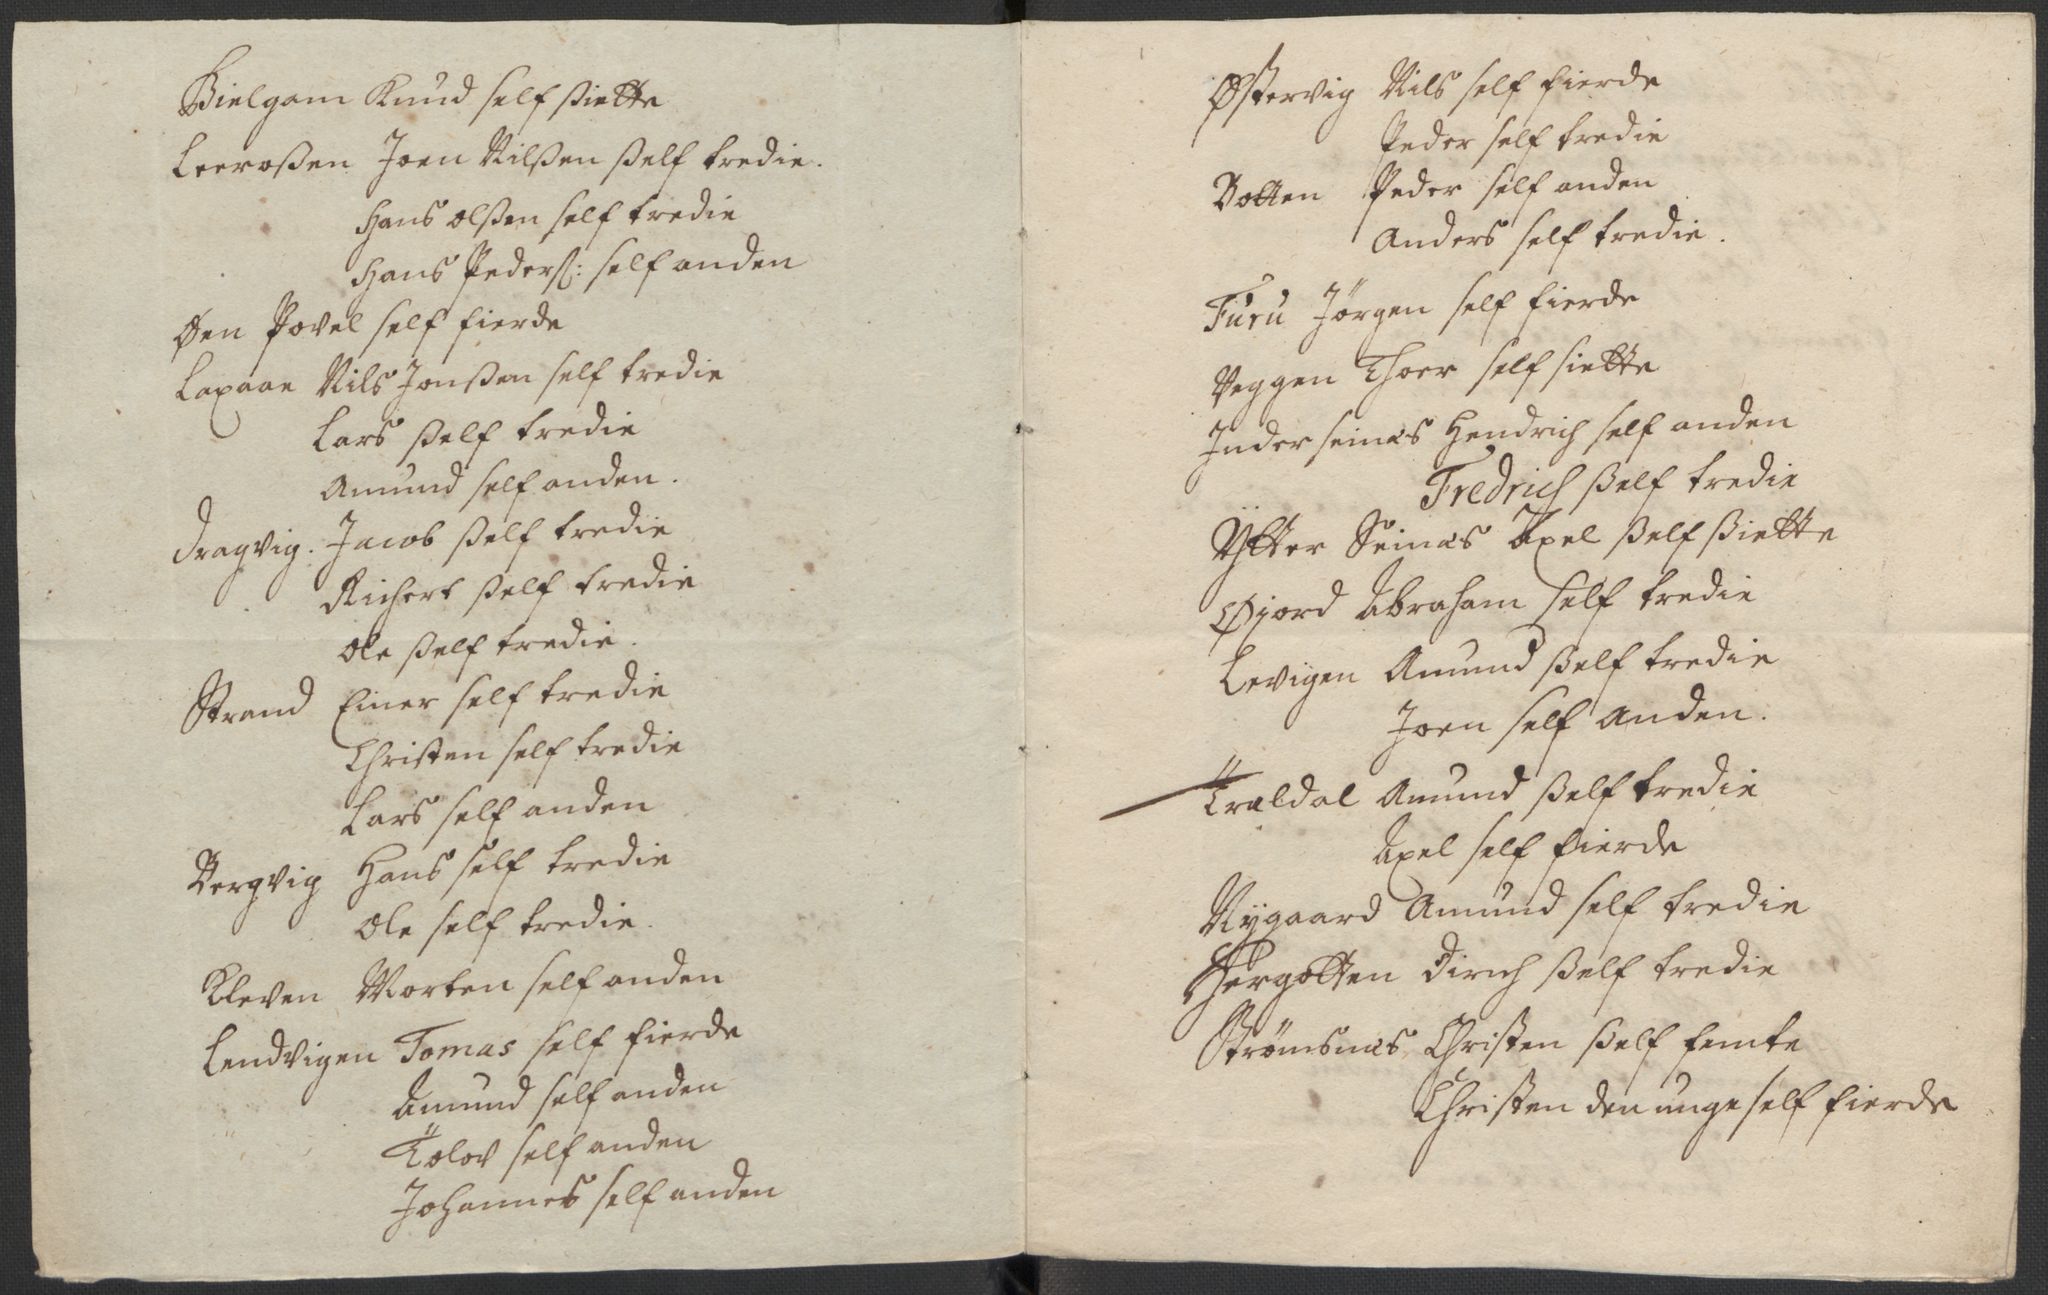 Bielgam Knud self siette
Leeroßen Joen Nilßen ßelf tredie.
Hans olßen self tredie
Hans Peders: self anden
Øen Povel self fierde
Laxaae Nils Jonßen self tredie
Lars ßelf tredie
Amund self anden.
Dragvig. Jacob ßelf tredie
Richert ßelf tredie
Ole ßelf tredie.
Strand Einer self tredie
Christen self tredie
Lars self anden
Bergvig Hans self tredie
Ole self tredie.
Kleven Morten self anden
Lendvigen Tomas self fierde
Amund self anden
Tolov self anden
Johannes self anden
Østervig Nils self fierde
Peder self tredie
Botten Peder self anden
Anders self tredie.
Furu Jörgen self fierde
Veggen Thoer self siette
Inder seinæs Hendrich self anden
Fredrich ßelf tredie
Ytter Seinæs Axel ßelf ßiette
Øjord Abraham self tredie
Levigen Amund ßelf tredie
Joen self anden.
Trældal Amund ßelf tredie
Axel self fierde
Nygaard Amund self tredie
Hergotten Dirich ßelf tredie
Strømsnæs Christen ßelf femte
Christen den unge self fierde